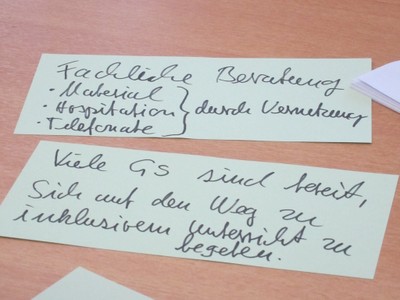 Fachliche Beratung
• Material
• Hospitation } durch Vernetzung
• Telefonate
Viele GS sind bereit,
Sich auf den Weg zu
inklusivem Unterricht zu
begeben.